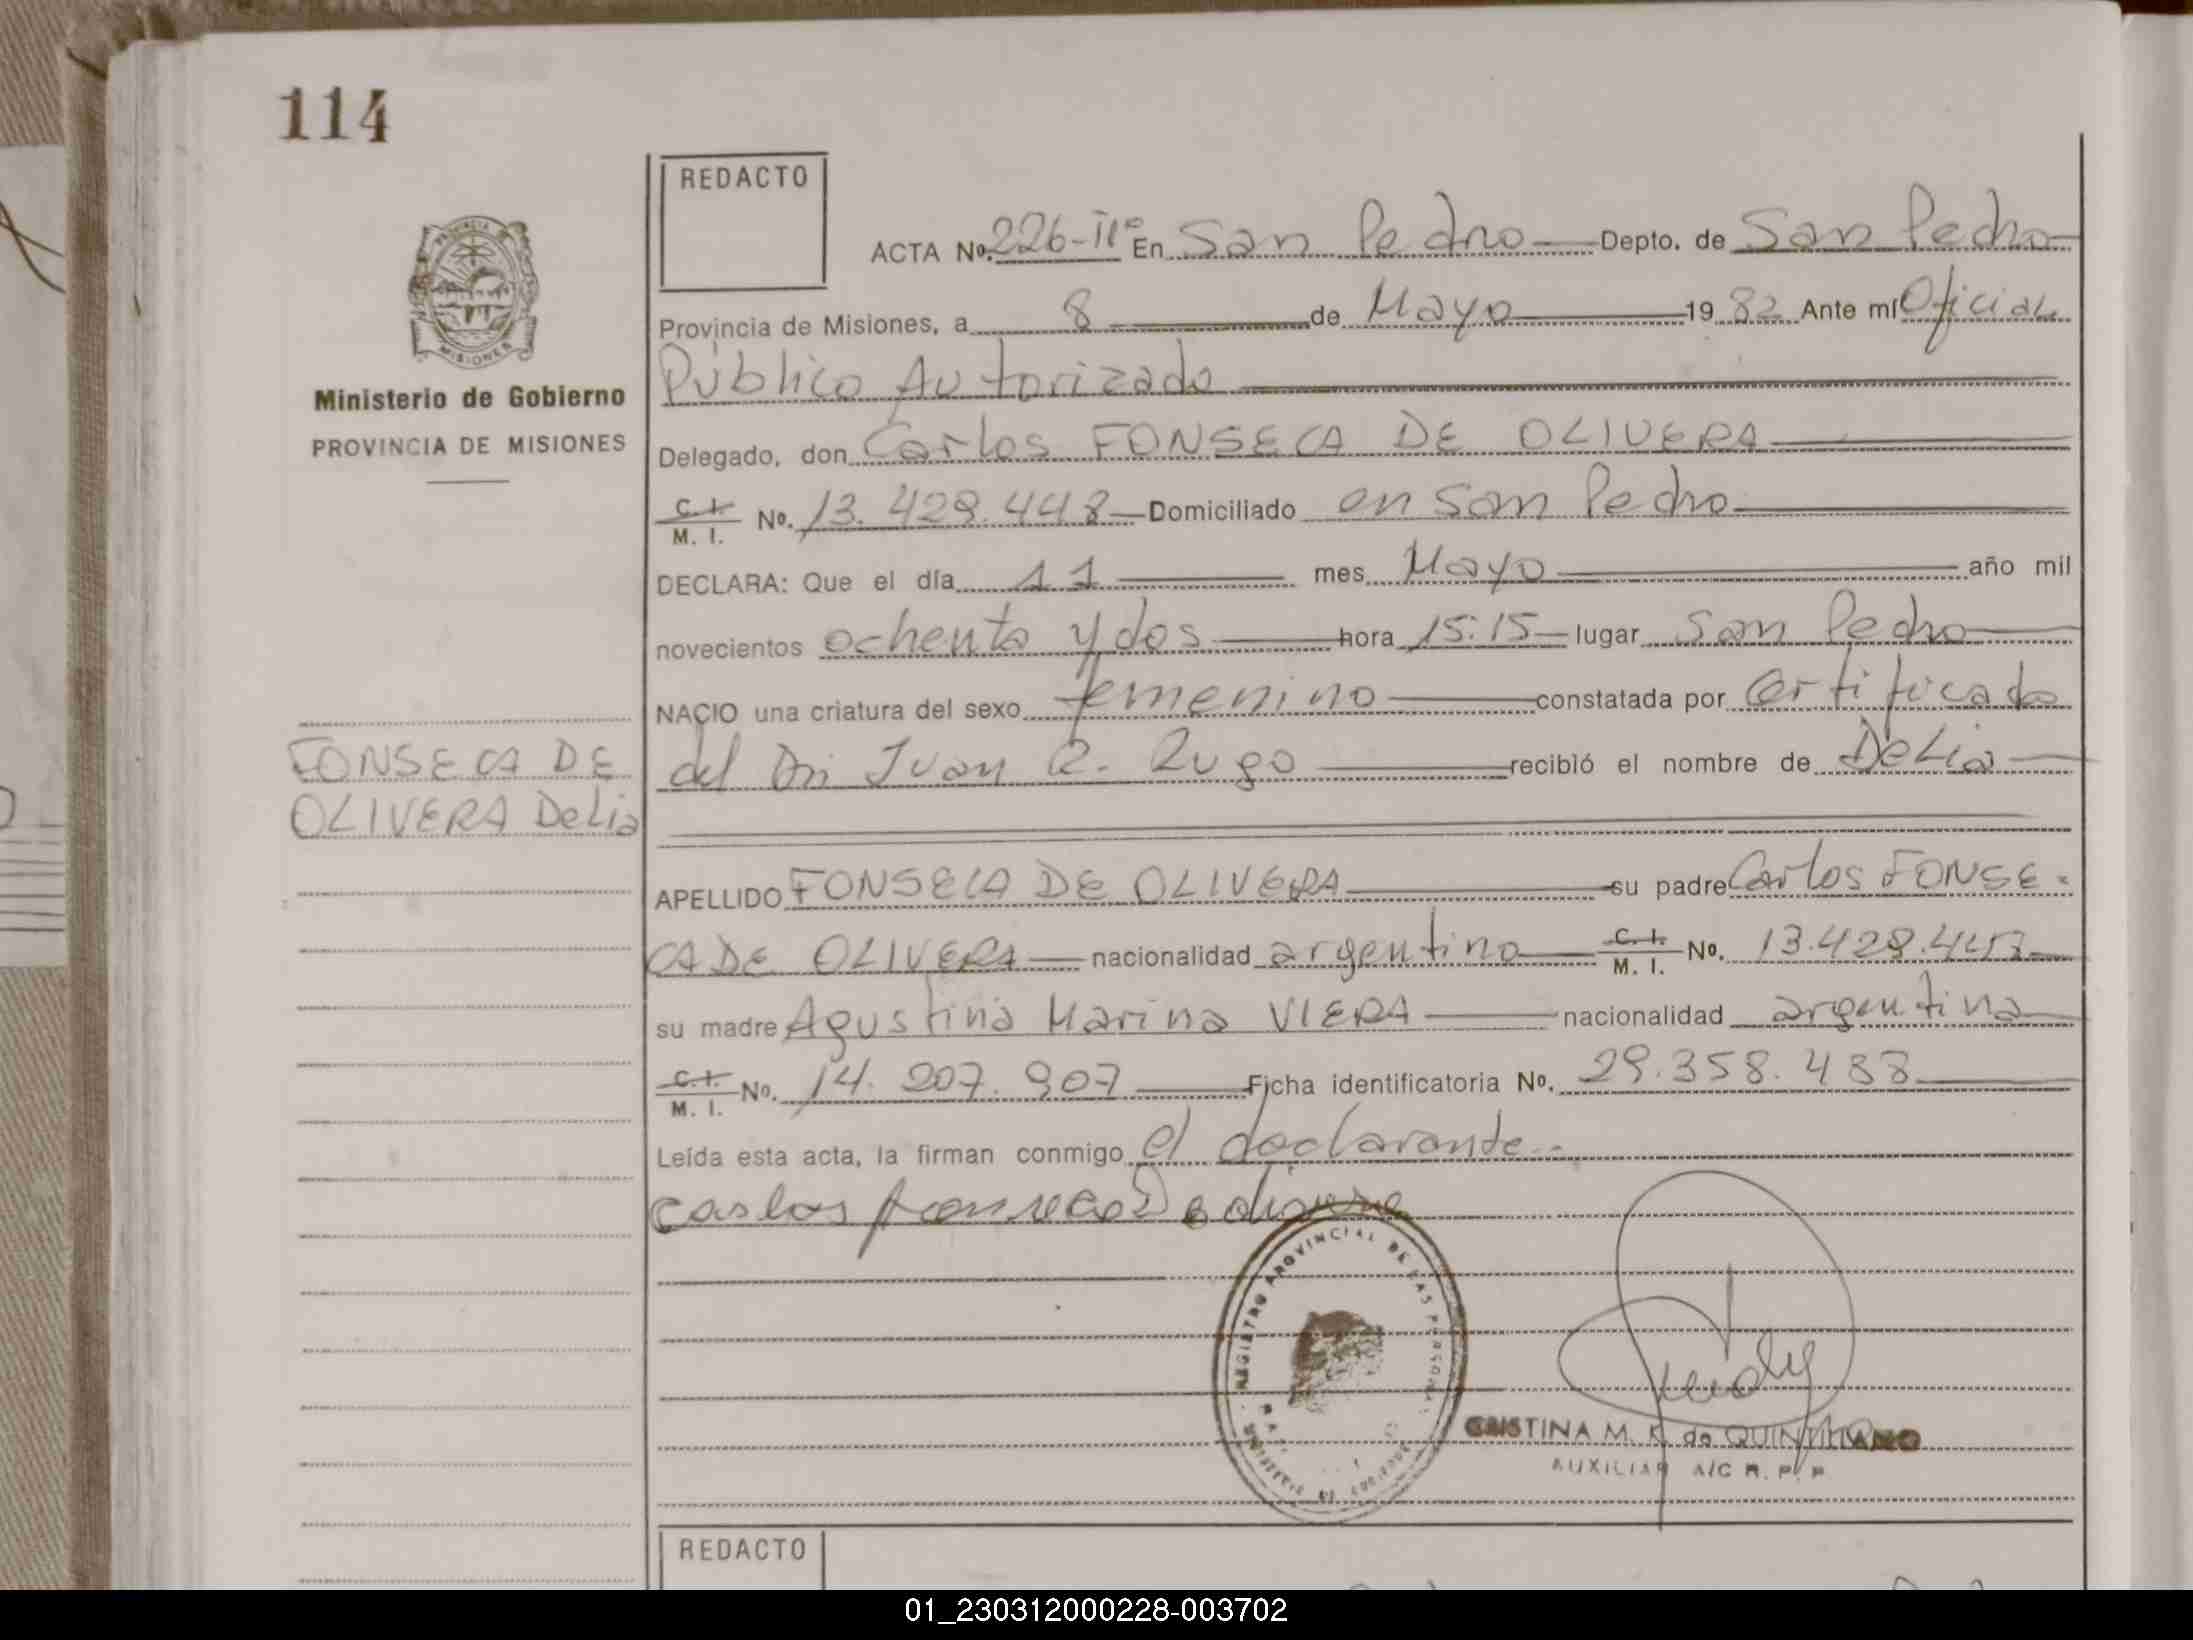 114
REDACTO
PROVINCIA DE MISIONES
ACTA Nº. 226-IIº En San Pedro Depto. de San Pedro
Provincia de Misiones, a 8 de Mayo 19 82 Ante mí Oficial
Público Autorizado
Ministerio de Gobierno
PROVINCIA DE MISIONES
Delegado, don Carlos FONSECA DE OLIVERA
C. I. M. I. No. 13.428.448 Domiciliado en San Pedro
DECLARA: Que el día 11 mes Mayo año mil
novecientos ochenta y dos hora 15:15 lugar San Pedro
NACIO una criatura del sexo femenino constatada por Certificado
FONSECA DE
OLIVERA Delia
del Dr. Juan R. Rugo recibió el nombre de Delia
APELLIDO FONSECA DE OLIVERA su padre Carlos FONSE-
CA DE OLIVERA nacionalidad argentino C. I. M. I. No. 13.428.448
su madre Agustina Marina VIERA nacionalidad argentina
C. I. M. I. No. 14.207.907 Ficha identificatoria No. 29.358.488
Leída esta acta, la firman conmigo el declarante.-
Carlos fonseca De olivera
REGISTRO PROVINCIAL DE LAS PERSONAS
CRISTINA M. K. de QUINTILIANO
AUXILIAR A/C R. P. P.
REDACTO
01_230312000228-003702